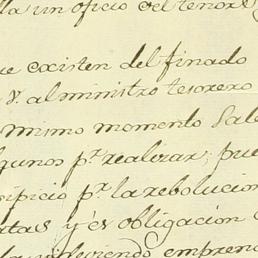 lla un oficio del tenor s
ue existen del finado
S.r al ministro tesorero
mismo momento Sale
lgunos p.r realizar; pue
sipicio p.r la rebolucion
atas y es obligacion
emprend